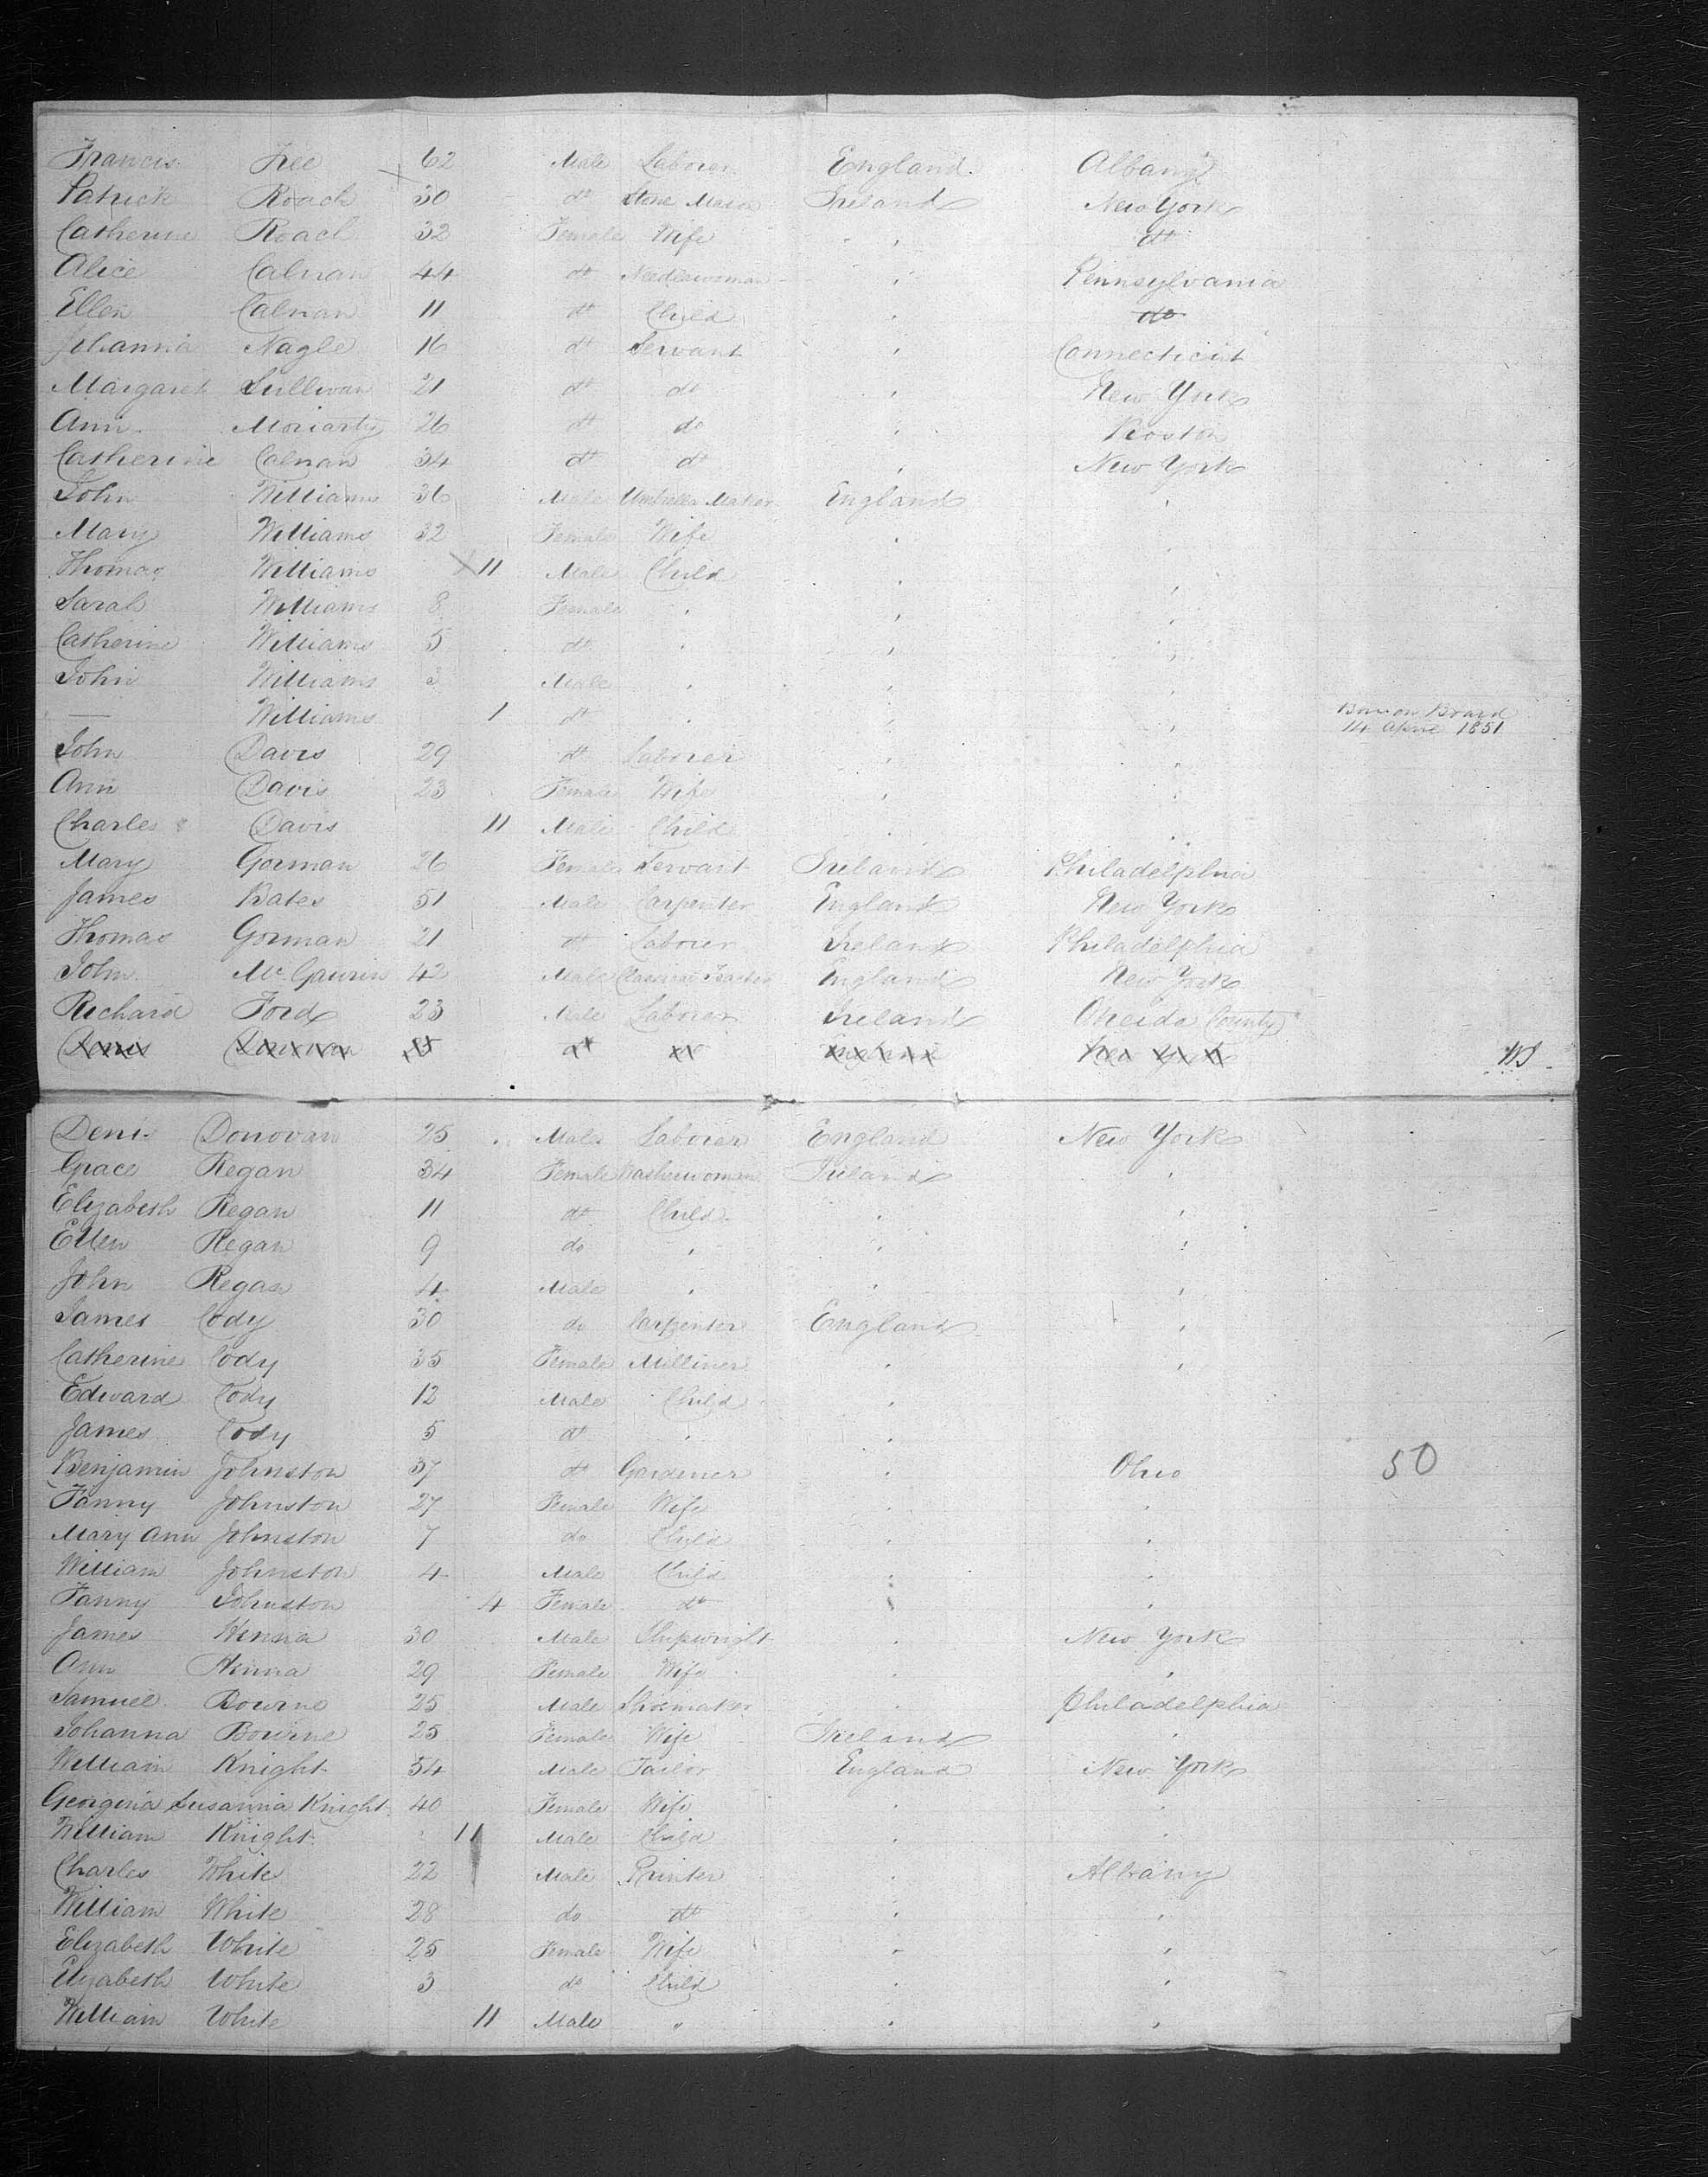 Francis Free 62 Male Laborer England Albany
Patrick Roach 30 do Stone Mason Ireland New York
Catherine Roach 32 Female Wife " do
Alice Calnan 44 do Needlewoman " Pennsylvania
Ellen Calnan 11 do Child " do
Johanna Nagle 16 do Servant " Connecticut
Margaret Sullivan 21 do do " New York
Ann Moriarty 26 do do " Boston
Catherine Calnan 34 do do " New York
John Williams 36 Male Umbrella Maker England "
Mary Williams 32 Female Wife " "
Thomas Williams 11 Male Child " "
Sarah Williams 8 Female " " "
Catherine Williams 5 do " " "
John Williams 3 Male " " "
— Williams 1 do " " " Born on Board 14 April 1851
John Davis 29 do Laborer " "
Ann Davis 23 Female Wife " "
Charles Davis 11 Male Child " "
Mary Gorman 26 Female Servant Ireland Philadelphia
James Bates 51 Male Carpenter England New York
Thomas Gorman 21 do Laborer Ireland Philadelphia
John Mc Gaurin 42 Male Classical Teacher England New York
Richard Ford 23 Male Laborer Ireland Oneida County
Denis Donovan 25 Male Laborer England New York
Grace Regan 34 Female Washerwoman Ireland "
Elizabeth Regan 11 do Child " "
Ellen Regan 9 do " " "
John Regan 4 Male " " "
James Cody 30 do Carpenter England "
Catherine Cody 35 Female Milliner " "
Edward Cody 12 Male Child "
James Cody 5 do " "
Benjamin Johnston 37 do Gardener " Ohio 50
Fanny Johnston 27 Female Wife " "
Mary Ann Johnston 7 do Child " "
William Johnston 4 Male Child " "
Fanny Johnston 4 Female do " "
James Henna 30 Male Shipwright " New York
Ann Henna 29 Female Wife " "
Samuel Bourne 25 Male Shoemaker " Philadelphia
Johanna Bourne 25 Female Wife Ireland "
William Knight 54 Male Tailor England New York
Georgina Susanna Knight 40 Female Wife " "
William Knight 11 Male Child " "
Charles White 22 Male Printer " Albany
William White 28 do do " "
Elizabeth White 25 Female Wife " "
Elizabeth White 3 do Child " "
William White 11 Male " " "